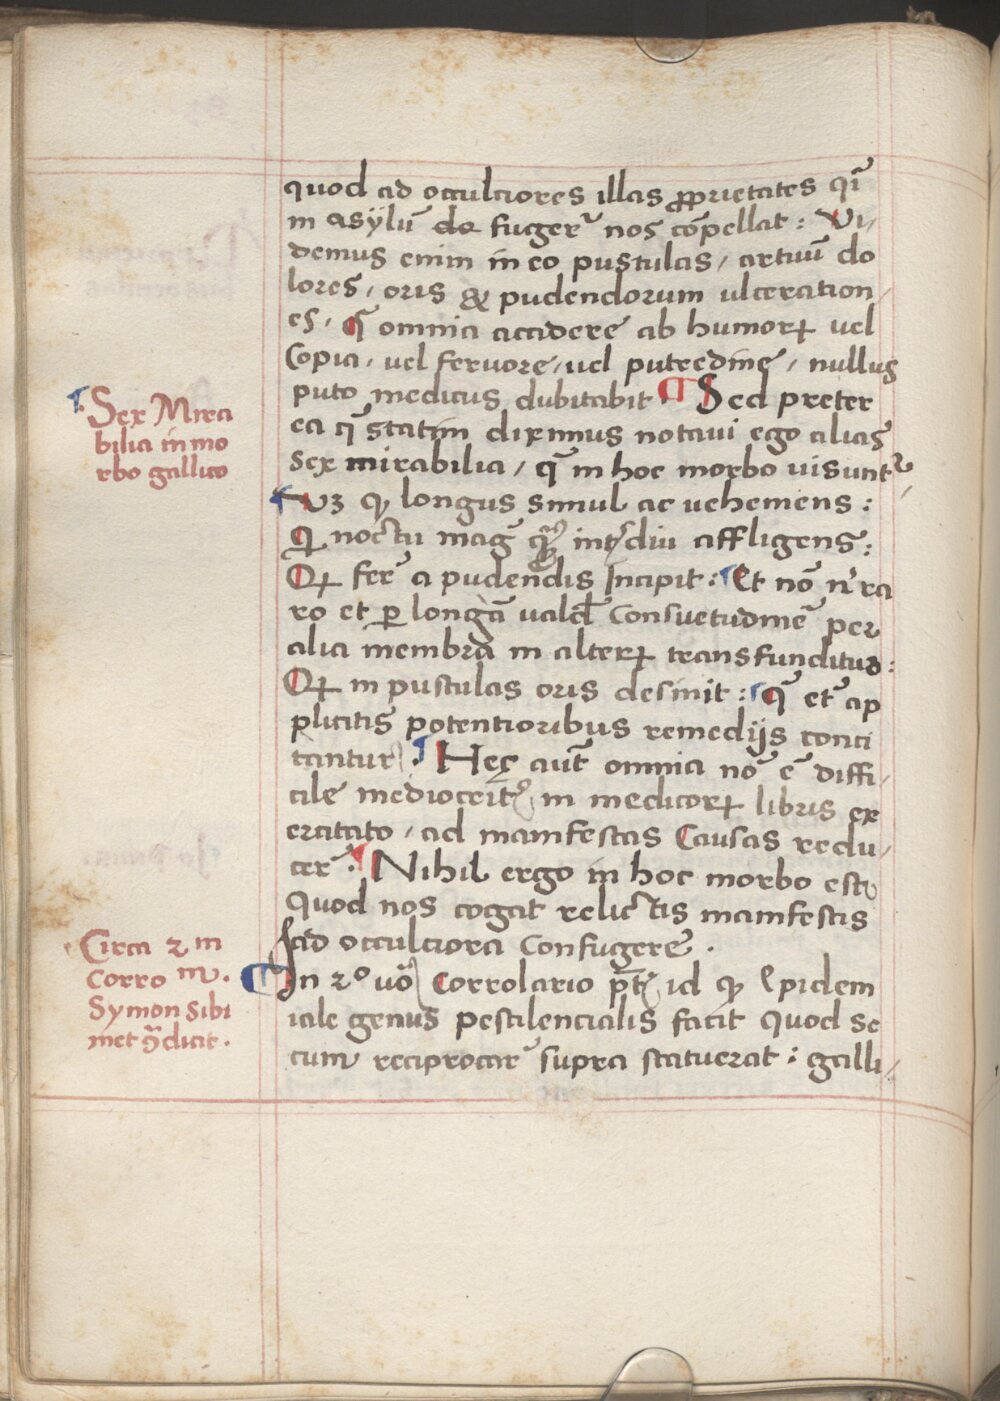 quod ad occulciores illas ꝓprietates qͣi
in asÿlū de fuger̉ nos cōpellat : Vi,
demus enim in eo pustulas, artuū do
lores, oris & pudendorum ulceration,
es, q̄ omnia accidere ab humoꝝ uel
Copia, uel fervore, uel putredine, nullus
puto medicus dubitabit ¶ Sed preter
ea q̄ statim diximus notavi ego alias
Sex mirabilia, q̄ in hoc morbo uisunt᷑
¶ Vꝫ ꝙ longus simul ac uehemens :
Qi noctu mag̅ int̉diu affligens :
Qꝝ fer̉ a pudendis Incipit : ¶ Et nō n̉ ra
ro et ꝑ longā uald̄ Consuetudinē per
alia membra in alteꝝ transfunditur :
Qꝝ in pustulas oris desinit : ¶ q̄ et̄ ap
plicitis potentioribus remedijs conci
tantur ¶ Hęc aut̄ omnia nō ē diffi,
cile mediocrit᷑ in medicoꝝ libris ex
ercitato, ad manifestas Causas redu,
cer̉. ¶ Nihil ergo in hoc morbo est
Quod nos cogat relictis manifestis
ad occulciora Confugere .
¶ In 2º uo᷑ Corrolario pt̄ id ꝙ Epidem
iale genus pestilencialis facit Quod se
cum reciprocar̉ supra statuerat : galli,
¶ Sex Mira
bilia in mo
rbo gallico
Circa 2 m
Corro m.
Symon sibi
met ꝯdicit .